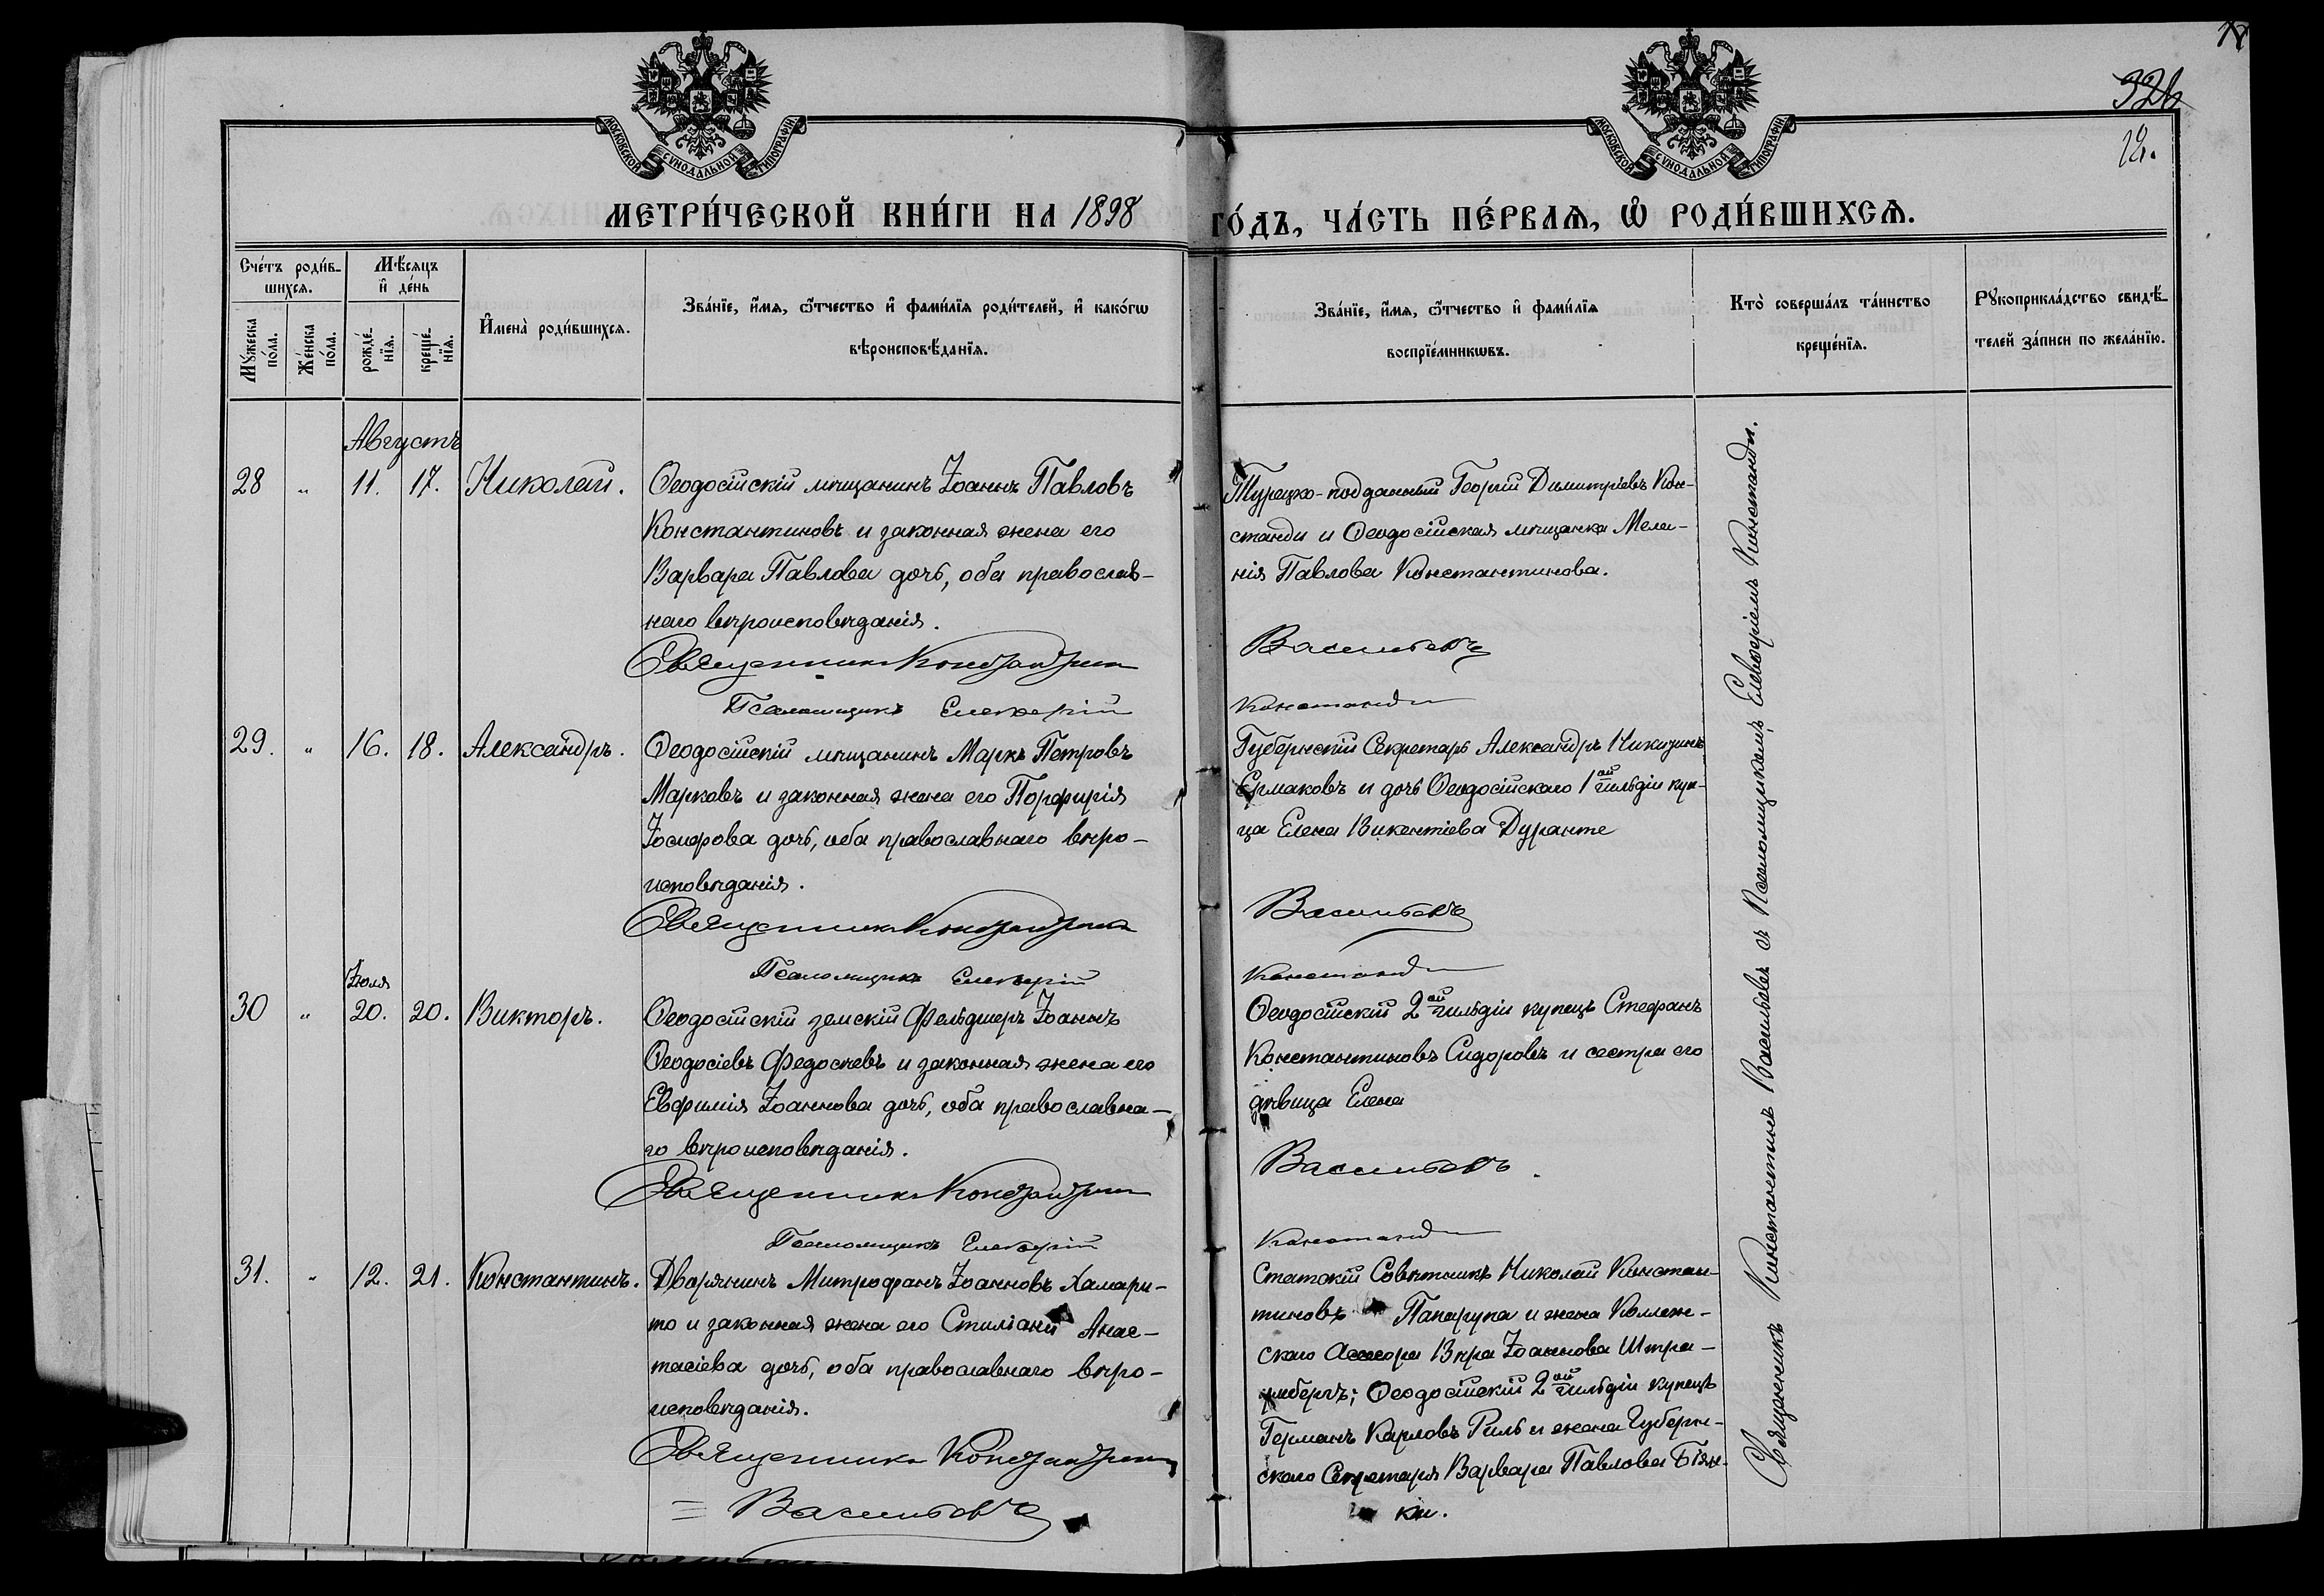 326
12.
МОСКОВСКОЙ СѴНОДАЛЬНОЙ ТИПОГРАФІИ
МОСКОВСКОЙ СѴНОДАЛЬНОЙ ТИПОГРАФІИ
МЕТРИ́ЧЕСКОЙ КНИ́ГИ НА 1898 ГО́ДЪ, ЧА́СТЬ ПЕ́РВАѦ, Ѡ҆ РОДИ́ВШИХСѦ.
Сче́тъ роди́в-
шихсѧ.
Мꙋ́жеска по́ла.
Же́нска по́ла.
Мѣ́сѧцъ
и҆ де́нь
рожде́-
нїѧ.
креще́-
нїѧ.
И҆мена̀ роди́вшихсѧ.
Зва́нїе, и҆́мѧ, ѻ҆́тчество и҆ фами́лїѧ роди́телей, и҆ како́гѡ
вѣроисповѣ́данїѧ.
Зва́нїе, и҆́мѧ, ѻ҆́тчество и҆ фами́лїѧ
воспрїе́мникѡвъ.
Кто̀ соверша́лъ та́инство
креще́нїѧ.
Рꙋкоприкла́дство свидѣ́-
телей за́писи по жела́нїю.
Августъ
28 " 11. 17. Николай.
Ѳеодосійскій мѣщанинъ Іоаннъ Павловъ
Константиновъ и законная жена его
Варвара Павлова дочь, оба православ-
наго вѣроисповѣданія.
Священникъ Константинъ
Псаломщикъ Елевѳерій
Турецко-подданный Георгій Димитріевъ Кон-
станди и Ѳеодосійская мѣщанка Мела-
нія Павлова Константинова.
Васильевъ
Констанди
29. " 16. 18. Александръ.
Ѳеодосійскій мѣщанинъ Маркъ Петровъ
Марковъ и законная жена его Порфирія
Іосифова дочь, оба православнаго вѣро-
исповѣданія.
Священникъ Константинъ
Псаломщикъ Елевѳерій
Губернскій Секретарь Александръ Никитинъ
Ермаковъ и дочь Ѳеодосійскаго 1ой гильдіи куп-
ца Елена Викентіева Дуранте
Васильевъ
Констанди
Іюля
30 " 20. 20. Викторъ.
Ѳеодосійскій земскій Фельдшеръ Іоаннъ
Ѳеодосіевъ Федосѣевъ и законная жена его
Евфимія Іоаннова дочь, оба православна-
го вѣроисповѣданія.
Священникъ Константинъ
Псаломщикъ Елевѳерій
Ѳеодосійскій 2ой гильдіи купецъ Стефанъ
Константиновъ Сидоровъ и сестра его
дѣвица Елена
Васильевъ
Констанди
31. " 12. 21. Константинъ.
Дворянинъ Митрофанъ Іоанновъ Хамари-
то и законная жена его Стиліани Анас-
тасіева дочь, оба православнаго вѣро-
исповѣданія.
Священникъ Константинъ
= Васильевъ
Статскій Совѣтникъ Николай Констан-
тиновъ Папарупа и жена Коллеж-
скаго Асессора Вѣра Іоаннова Штра-
; Ѳеодосійскій 2ой гильдіи купецъ
Германъ Карловъ Риль и жена Губерн-
скаго Секретаря Варвара Павлова Біян-
ки.
Священникъ Константинъ Васильевъ съ Псаломщикомъ Елевѳеріемъ Констанди.